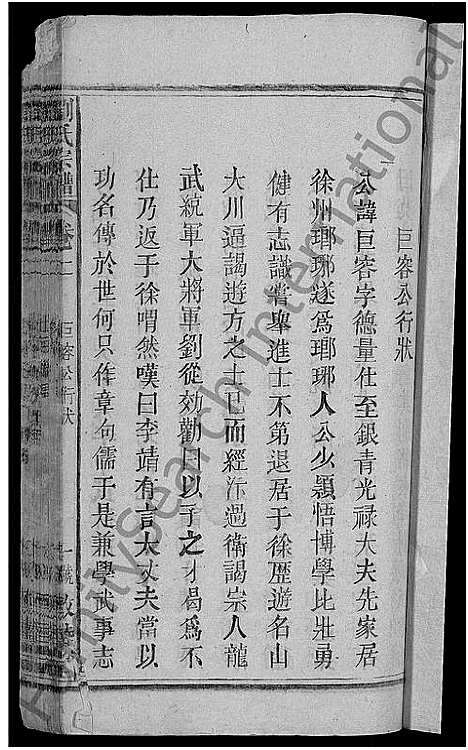 巨容公行狀
公諱巨容字德量仕至銀青光祿大夫先家居
徐州瑯琊遂爲瑯琊人公少穎悟博學比壯勇
健有志識嘗舉進士不第退居于徐歷遊名山
大川逼謁遊方之士已而經汴過衛謁崇人龍
武統軍大將軍劉從効勸曰以子之才曷爲不
仕乃返于徐喟然嘆曰李靖有言大丈夫當以
功名傳於世何只作章句儒于是兼學武事志
劉氏宗譜 卷二
巨容公行狀
FamilySearch International